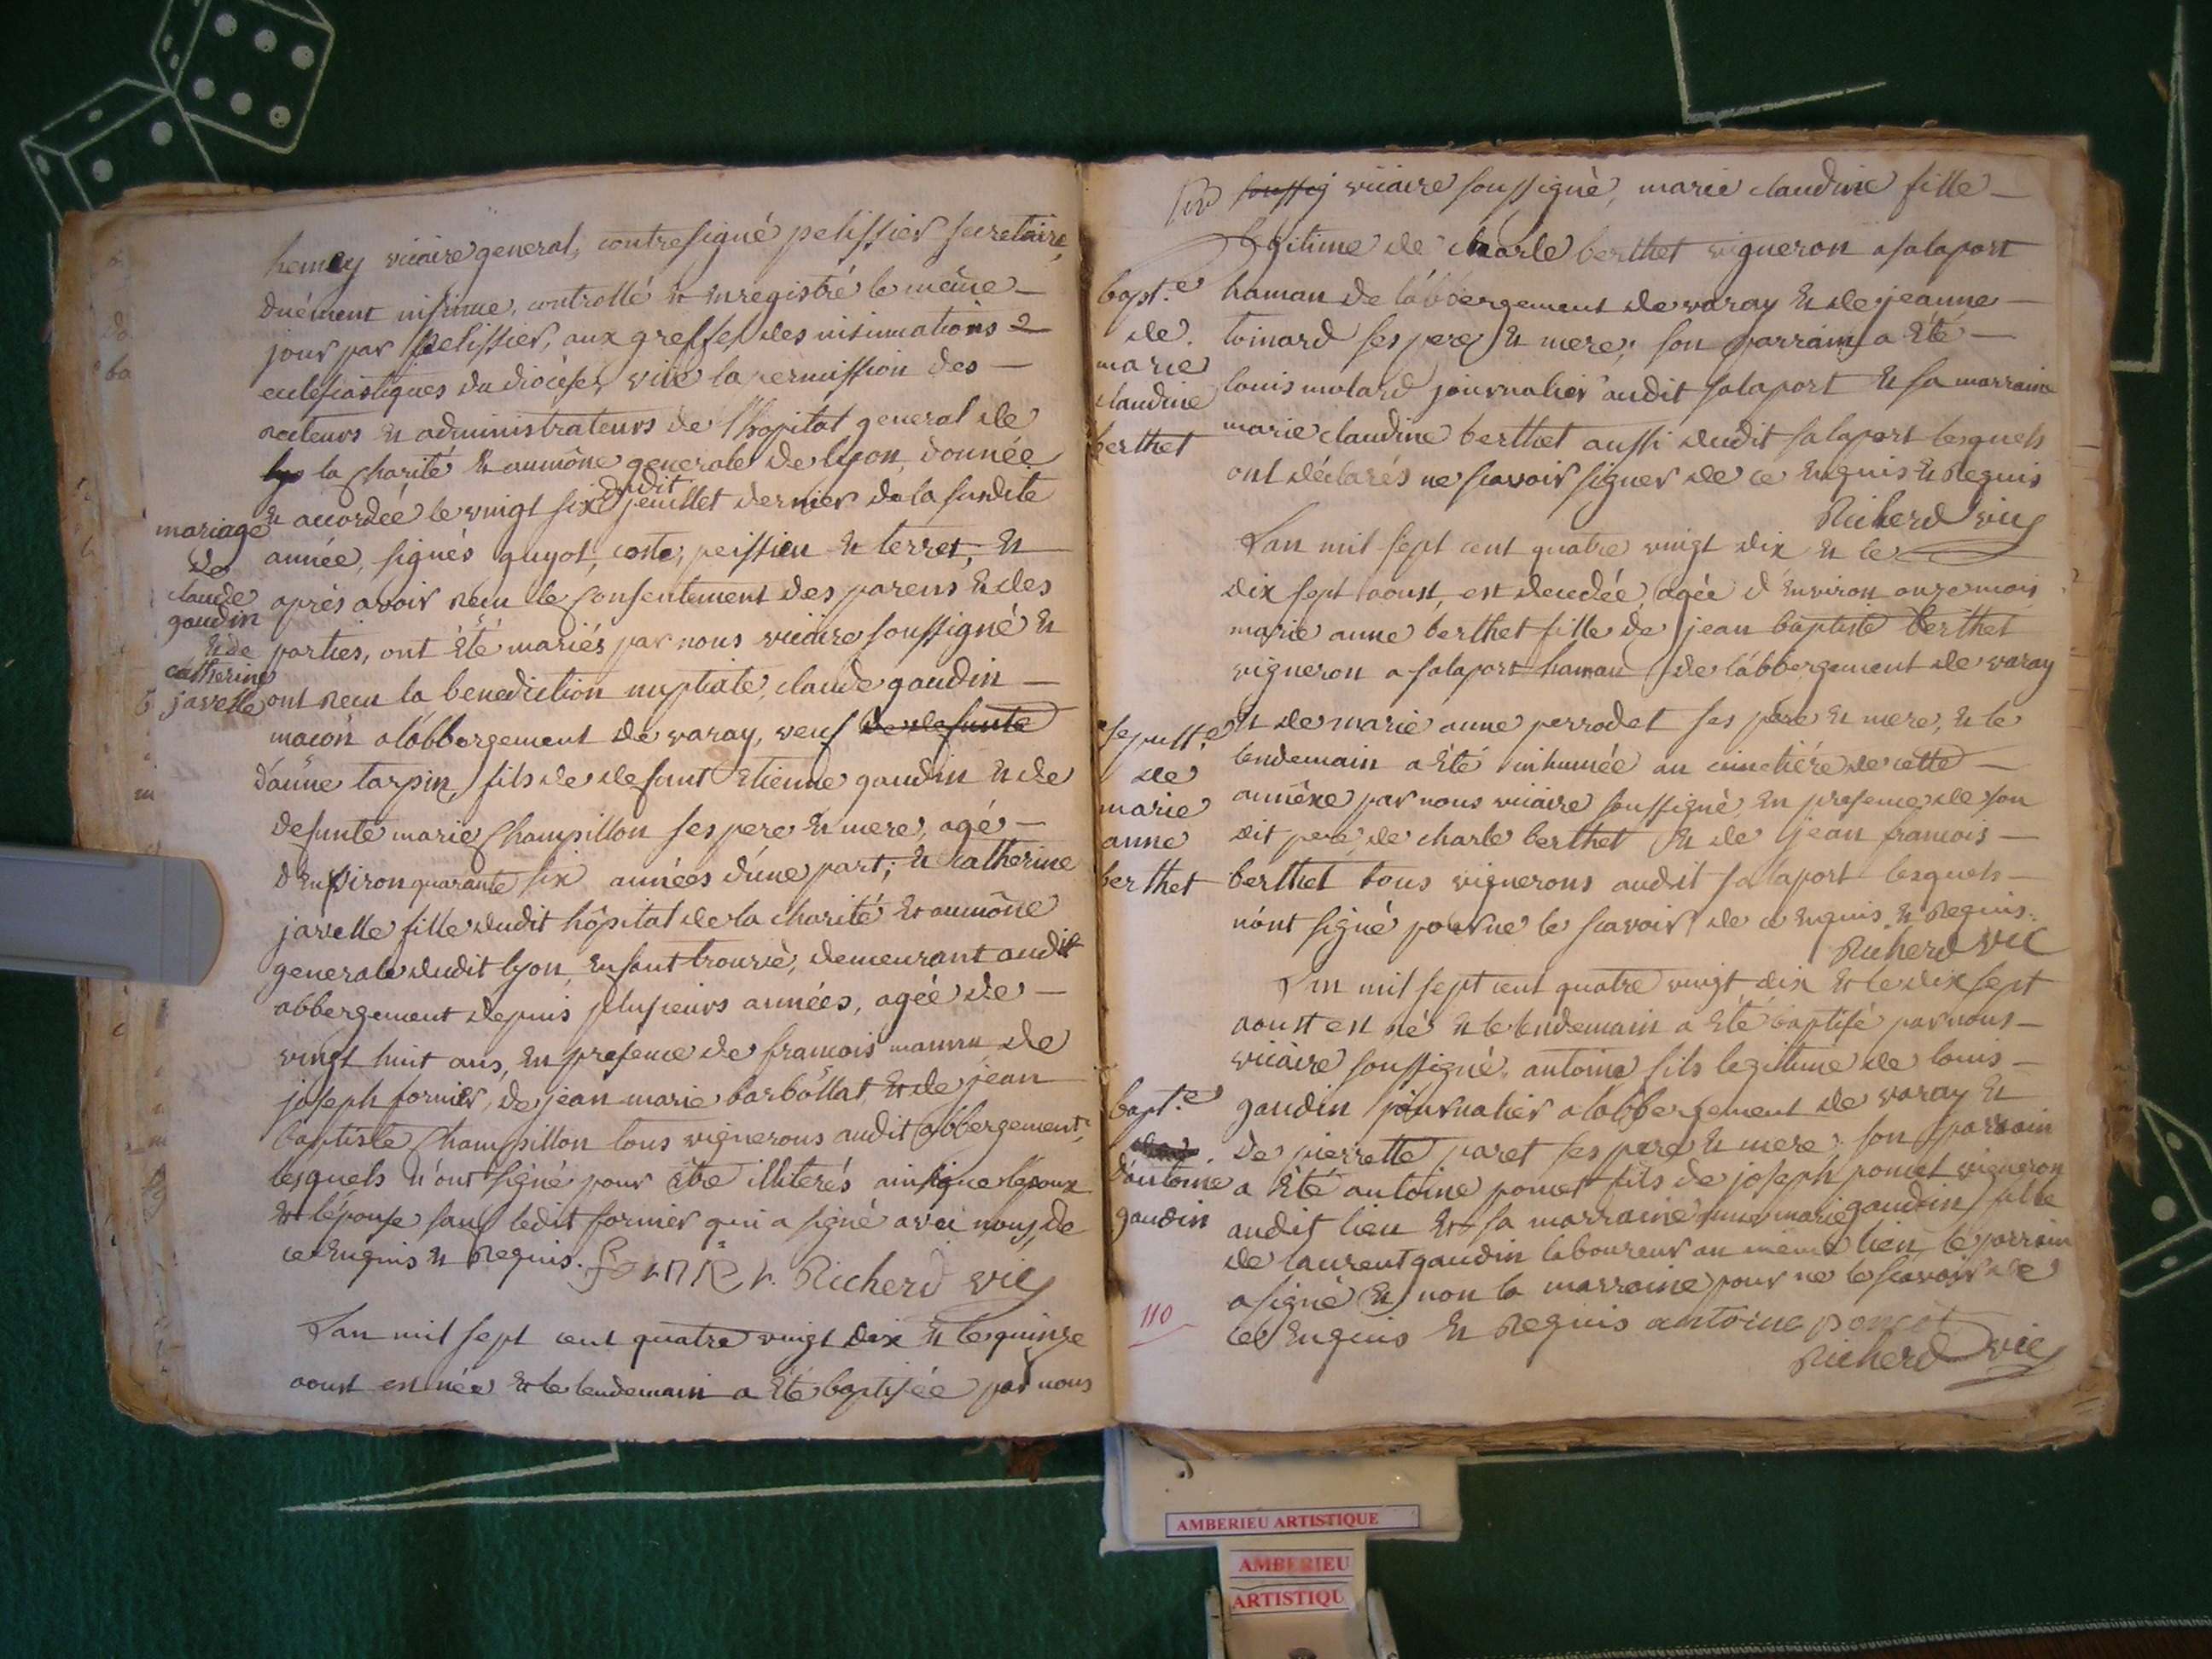 hemey vicaire general, contresigné pelissier secretaire,
duëment insinue, controllé et enregistré le même
jour par pelissier, aux greffes des insinuations
eclesiastiques du diocese, vüe la permission des
recteurs et administrateurs de l'hopital general de
la charité et aumône generale de lyon, donnée
et accordée le vingt six dudit jeuillet dernier de la susdite
mariage
de
claude
gaudin
et de
catherine
javelle
année, signés guyot, coste, peissieu et terret, et
après avoir reçu le consentement des parens et des
parties, ont été mariés par nous vicaire soussigné et
ont recu la benediction nuptiale, claude gaudin
macon a l'abbergement de varay, veuf de defunte
d'anne tarpin, fils de defunt etienne gaudin et de
defunte marie champillon ses pere et mere, agé
d'environ quarante six années d'une part; et catherine
javelle fille dudit hôpital de la charité et aumône
generale dudit lyon, enfant trouvé, demeurant audit
abbergement depuis plusieurs années, agée de
vingt huit ans, en presence de francois de
joseph fornier, de jean marie barbollat et de jean
baptiste champillon tous vignerons audit abbergement,
lesquels n'ont signé pour être illiterés ainsi que l'epoux
et l'épouse sauf ledit fornier qui a signé avec nous, de
ce enquis et requis. fornier. Richerd vic
L'an mil sept cent quatre vingt dix et le quinze
aoust est née et le lendemain a été baptisée par nous
soussig vicaire soussigné, marie claudine fille
legitime de charle berthet vigneron a salaport
bapt.e
de
marie
claudine
berthet
hamau de l'abbergement de varay et de jeanne
toinard ses pere et mere; son parrain a été
louis molard journalier audit salaport et sa marraine
marie claudine berthet aussi dudit salaport lesquels
ont déclarés ne scavoir signer de ce enquis et requis
Richerd vic
L'an mil sept cent quatre vingt dix et le
dix sept aoust, est decedée, agée d'environ onze mois
marie anne berthet fille de jean baptiste berthet
vigneron a salaport hamau de l'abbergement de varay
sepult.e
de
marie
anne
berthet
et de marie anne perrodet ses pere et mere, et le
lendemain a été inhumée au cimetiére de cette
annêxe par nous vicaire soussigné, en presence de son
dit pere, de charle berthet et de jean francois
berthet tous vignerons audit salaport lesquels
n'ont signé pour ne le scavoir de ce enquis et requis.
Richerd vic
L'an mil sept cent quatre vingt dix et le dix sept
aoust est né et le lendemain a été baptisé par nous
vicaire soussigné, antoine fils legitime de louis
bapt.e
d'antoine
gaudin
gaudin journalier a l'abbergement de varay et
de pierrette paret ses pere et mere; son parrain
a été antoine poncet fils de joseph poncet vigneron
audit lieu et sa marraine marie gaudin fille
de laurent gaudin laboureur au même lieu, le parrain
a signé et non la marraine pour ne le scavoir de
ce enquis et requis antoine poncet
110
Richerd vic
AMBERIEU ARTISTIQUE
AMBERIEU
ARTISTIQU